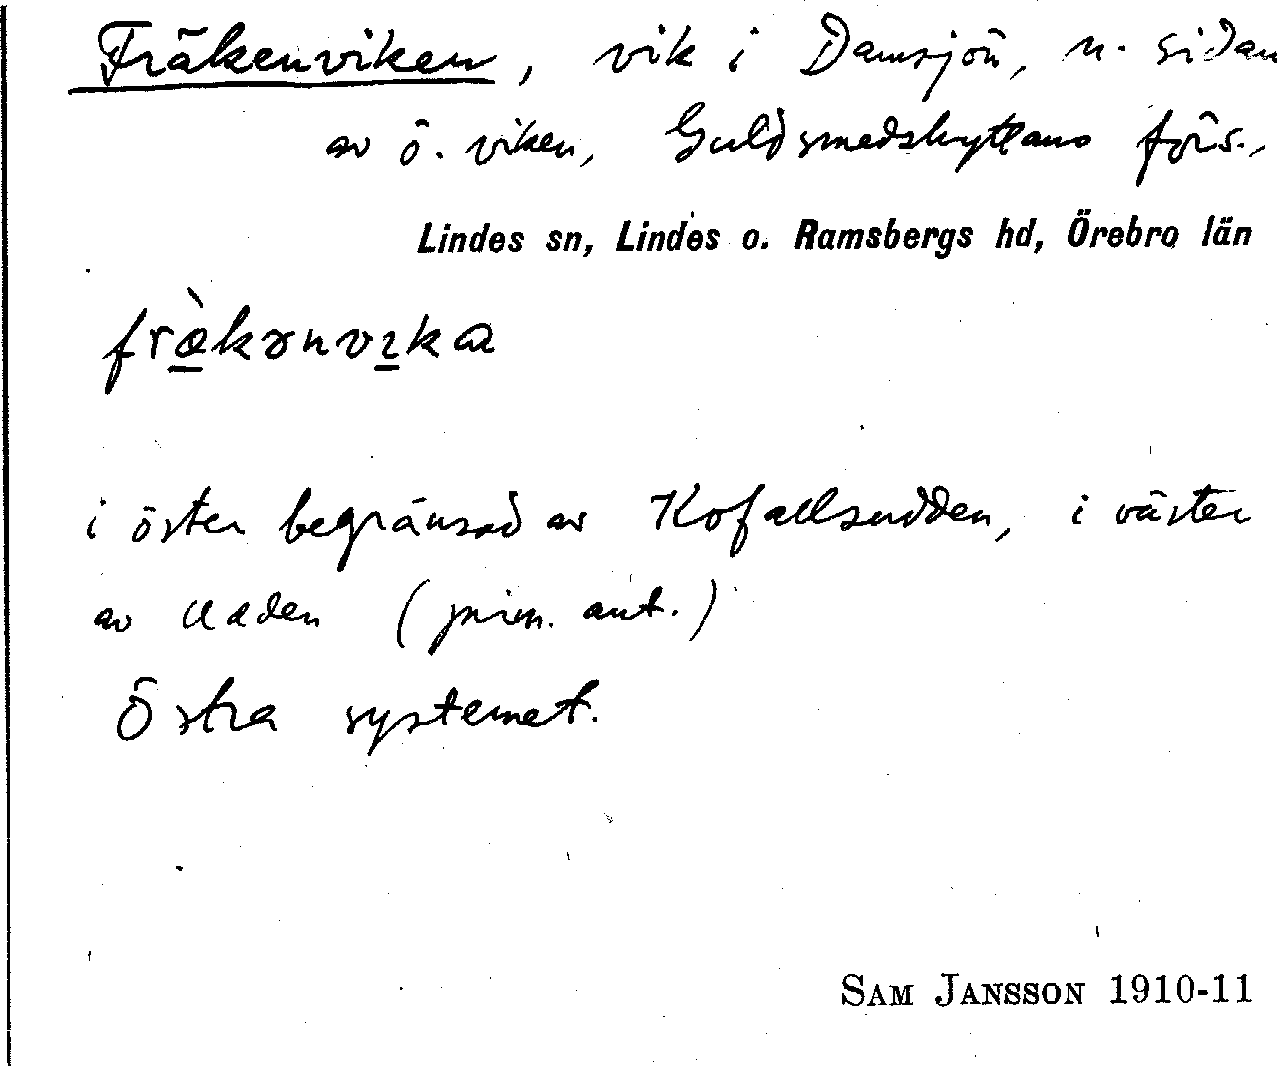 Fräkenviken, vik i Damsjön, n. sidan
av ö. viken, Guldsmedshyttans förs.,
Lindes sn, Lindes o. Ramsbergs hd, Örebro län
fræ̀kənvika
i öster begränsad av Kofallsudden, i väster
av Udden (prim. ant.)
Östra systemet.
SAM JANSSON 1910-11